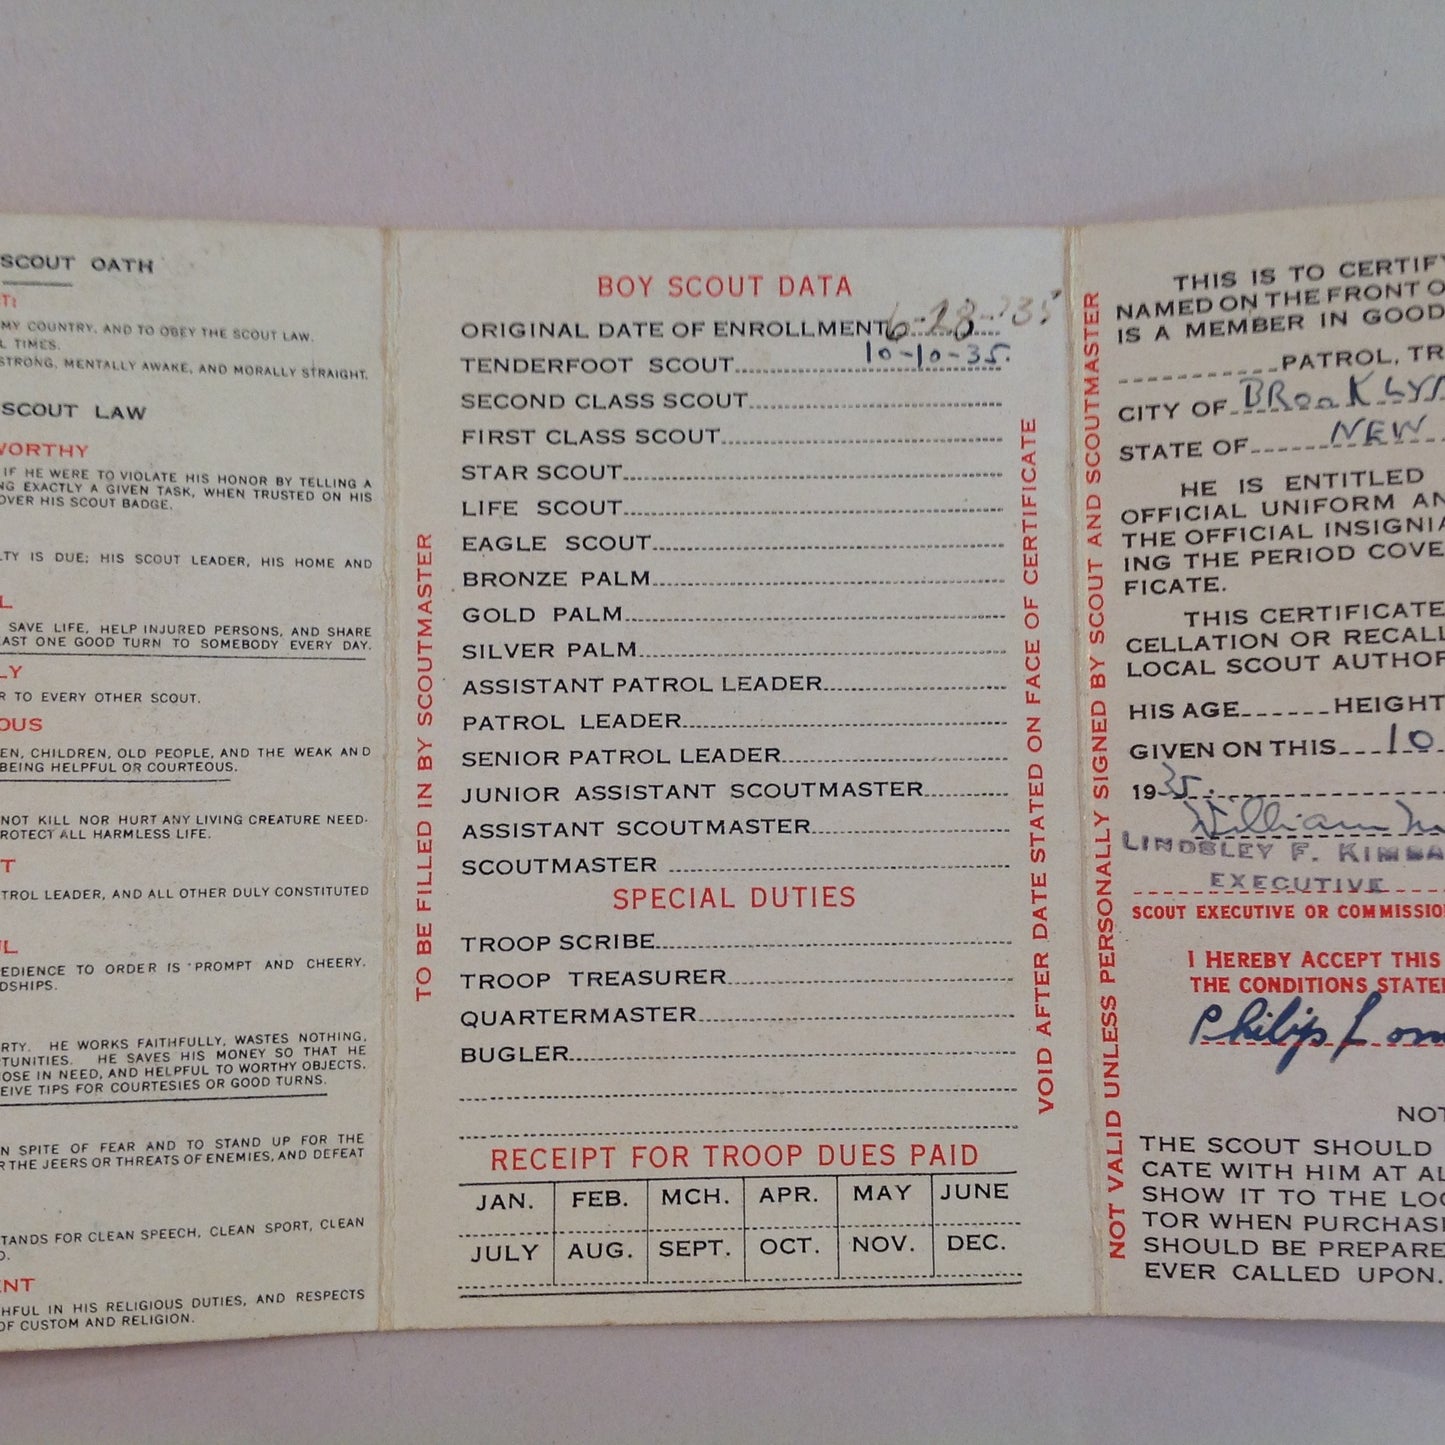 SCOUT OATH
MY COUNTRY, AND TO OBEY THE SCOUT LAW.
TIMES.
STRONG, MENTALLY AWAKE, AND MORALLY STRAIGHT.
SCOUT LAW
WORTHY
IF HE WERE TO VIOLATE HIS HONOR BY TELLING A
EXACTLY A GIVEN TASK, WHEN TRUSTED ON HIS
OVER HIS SCOUT BADGE.
LTY IS DUE; HIS SCOUT LEADER, HIS HOME AND
L
SAVE LIFE, HELP INJURED PERSONS, AND SHARE
EAST ONE GOOD TURN TO SOMEBODY EVERY DAY.
LY
R TO EVERY OTHER SCOUT.
OUS
EN, CHILDREN, OLD PEOPLE, AND THE WEAK AND
BEING HELPFUL OR COURTEOUS.
NOT KILL NOR HURT ANY LIVING CREATURE NEED-
PROTECT ALL HARMLESS LIFE.
T
TROL LEADER, AND ALL OTHER DULY CONSTITUTED
UL
EDIENCE TO ORDER IS PROMPT AND CHEERY.
DSHIPS.
RTY. HE WORKS FAITHFULLY, WASTES NOTHING,
TUNITIES. HE SAVES HIS MONEY SO THAT HE
OSE IN NEED, AND HELPFUL TO WORTHY OBJECTS.
EIVE TIPS FOR COURTESIES OR GOOD TURNS.
N SPITE OF FEAR AND TO STAND UP FOR THE
R THE JEERS OR THREATS OF ENEMIES, AND DEFEAT
TANDS FOR CLEAN SPEECH, CLEAN SPORT, CLEAN
ENT
HFUL IN HIS RELIGIOUS DUTIES, AND RESPECTS
OF CUSTOM AND RELIGION.
TO BE FILLED IN BY SCOUTMASTER
BOY SCOUT DATA
ORIGINAL DATE OF ENROLLMENT 6-28-35
TENDERFOOT SCOUT 10-10-35.
SECOND CLASS SCOUT
FIRST CLASS SCOUT
STAR SCOUT
LIFE SCOUT
EAGLE SCOUT
BRONZE PALM
GOLD PALM
SILVER PALM
ASSISTANT PATROL LEADER
PATROL LEADER
SENIOR PATROL LEADER
JUNIOR ASSISTANT SCOUTMASTER
ASSISTANT SCOUTMASTER
SCOUTMASTER
SPECIAL DUTIES
TROOP SCRIBE
TROOP TREASURER
QUARTERMASTER
BUGLER
RECEIPT FOR TROOP DUES PAID
JAN. FEB. MCH. APR. MAY JUNE
JULY AUG. SEPT. OCT. NOV. DEC.
VOID AFTER DATE STATED ON FACE OF CERTIFICATE
NOT VALID UNLESS PERSONALLY SIGNED BY SCOUT AND SCOUTMASTER
THIS IS TO CERTIFY
NAMED ON THE FRONT O
IS A MEMBER IN GOOD
PATROL, TR
CITY OF BRooKLYN
STATE OF NEW
HE IS ENTITLED
OFFICIAL UNIFORM AN
THE OFFICIAL INSIGNIA
ING THE PERIOD COVE
FICATE.
THIS CERTIFICATE
CELLATION OR RECALL
LOCAL SCOUT AUTHOR
HIS AGE HEIGHT
GIVEN ON THIS 10
1935.
William
LINDSLEY F. KIMBA
EXECUTIVE
SCOUT EXECUTIVE OR COMMISSIO
I HEREBY ACCEPT THIS
THE CONDITIONS STATE
Philip Lom
NOT
THE SCOUT SHOULD
CATE WITH HIM AT AL
SHOW IT TO THE LOC
TOR WHEN PURCHASI
SHOULD BE PREPARE
EVER CALLED UPON.